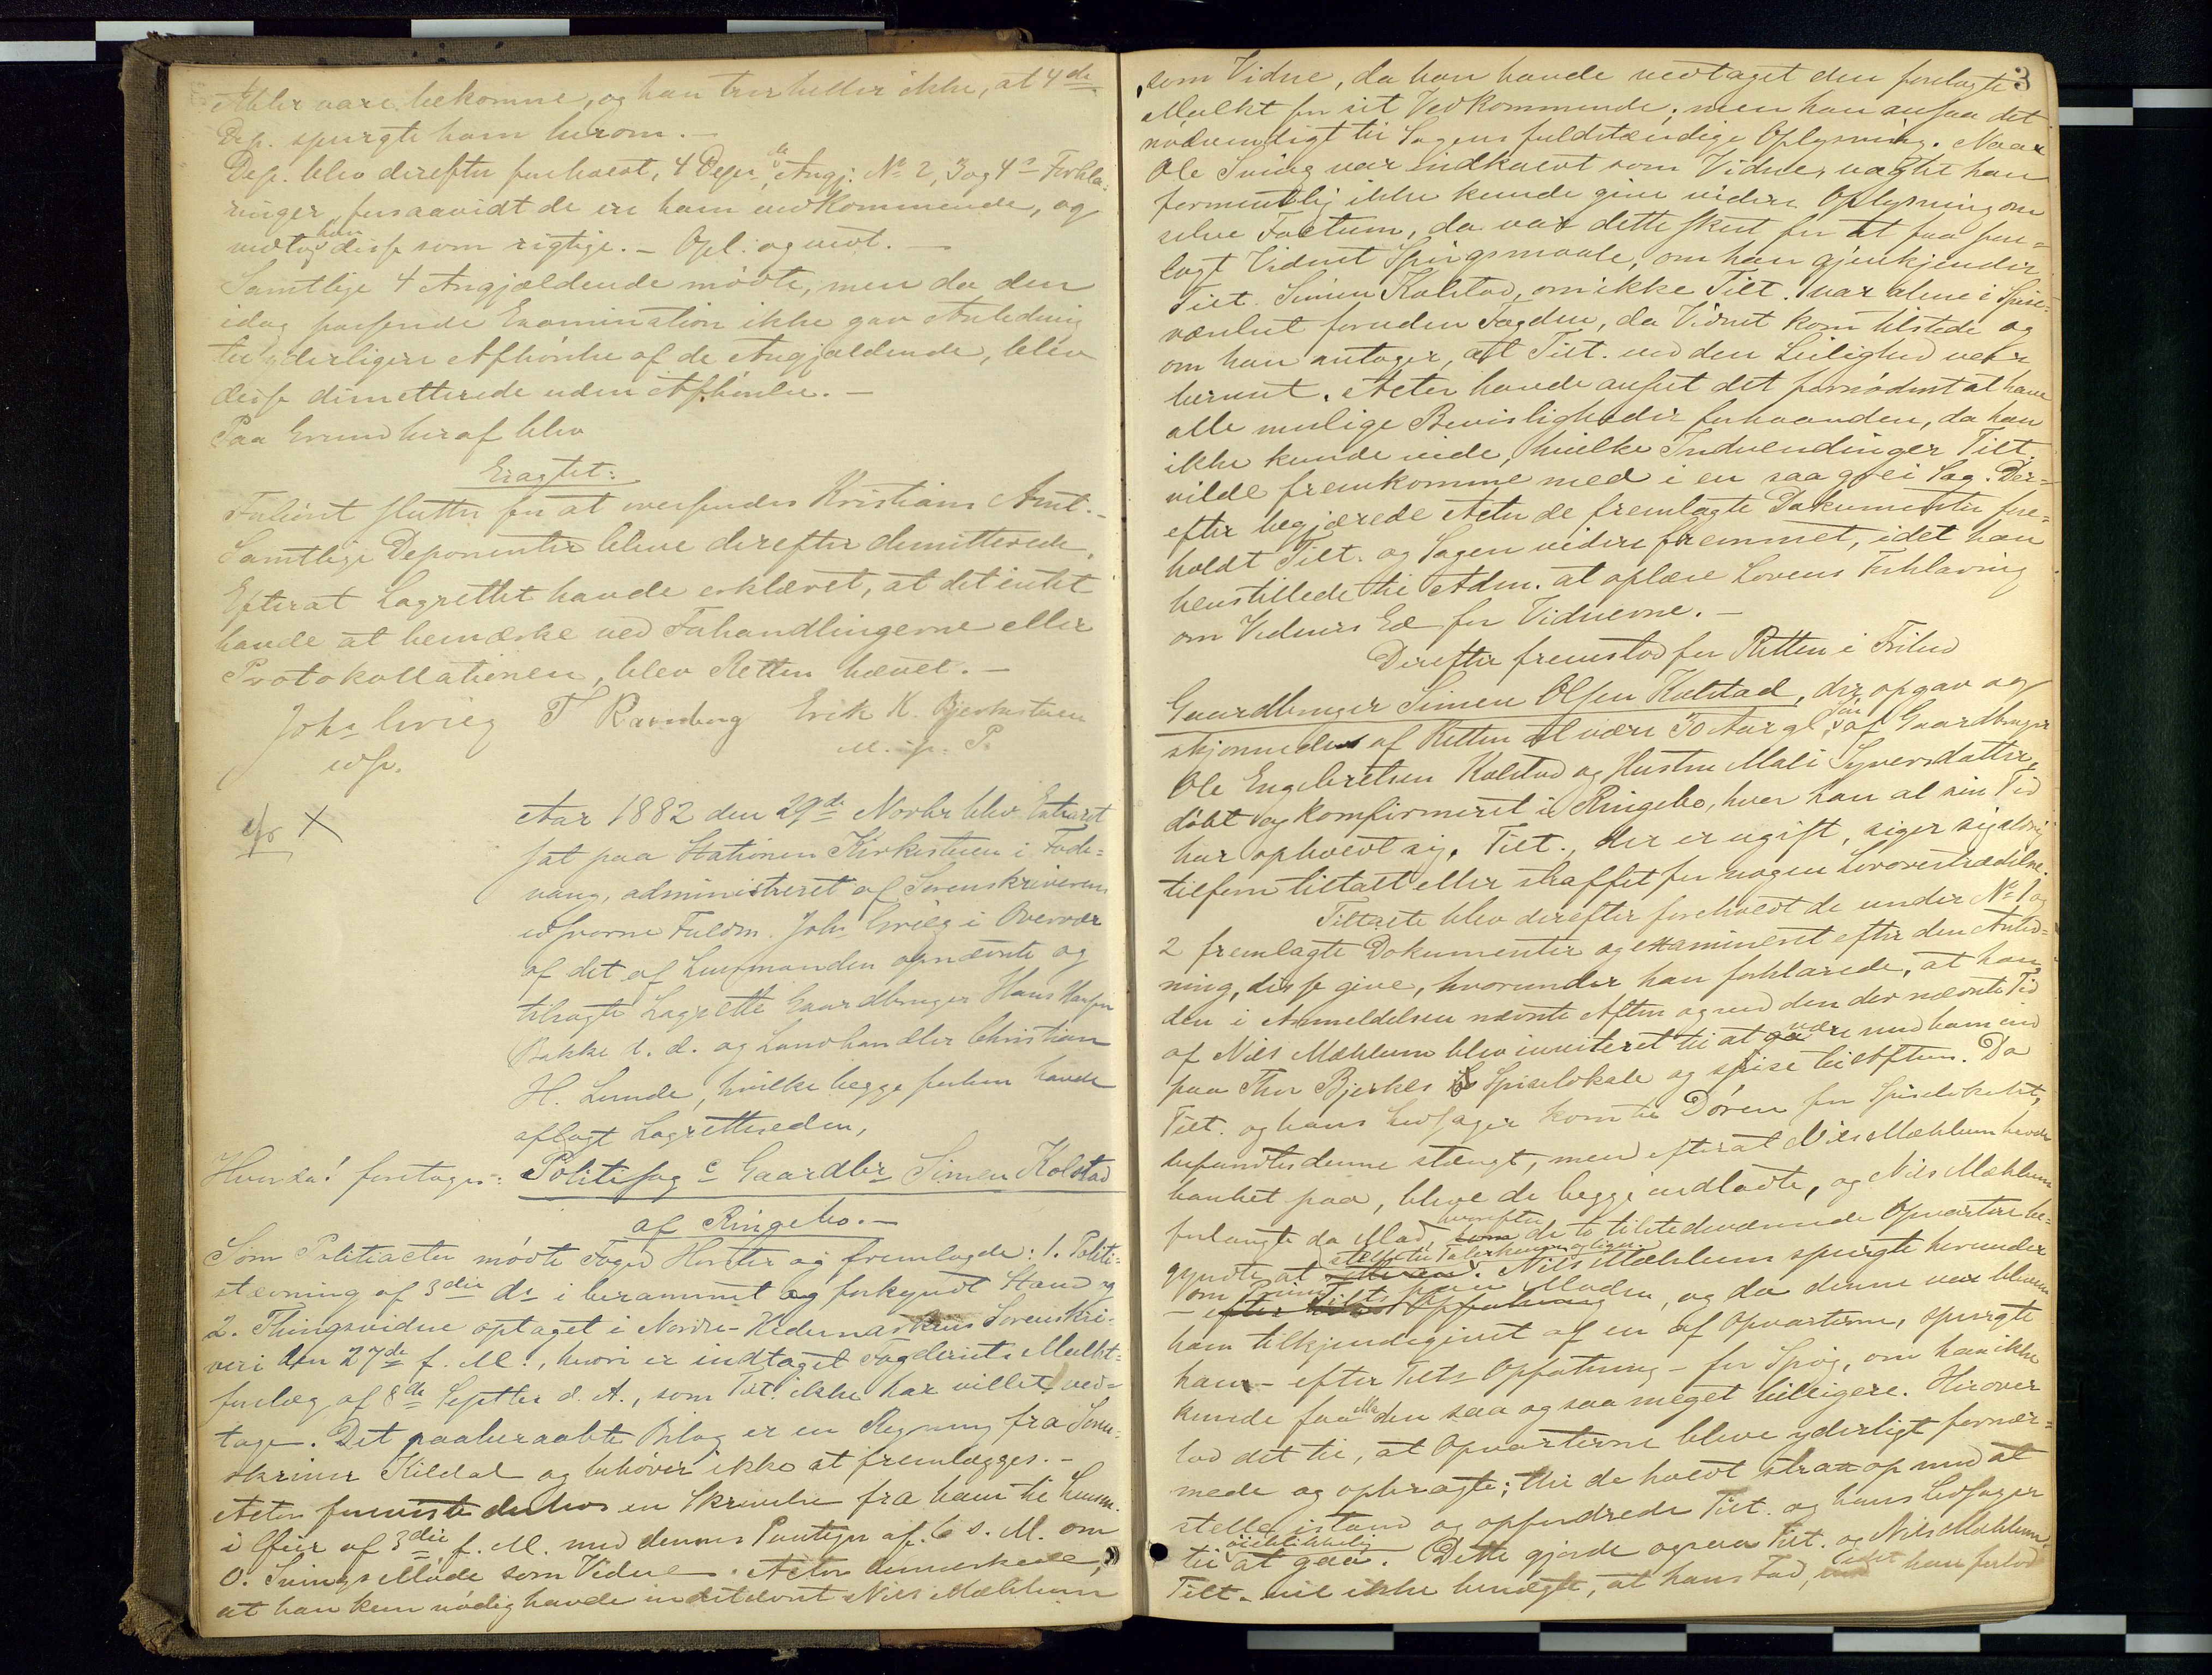 Æbler vare bekomne, og han tror heller ikke, at 4de
Dep. spurgte ham herom. -
Dep. blev derefter foreholdt, 4 Depr, Angj. No 2, 3 og 4s Forkla-
ringer, forsaavidt de ere ham vedkommende, og
vedtog han disse som rigtige. - Opl. og vedt. -
Samtlige 4 Angjældende mødte, men da den
idag passerede Examination ikke gav Anledning
til yderligere Afhørelse af de Angjældende, blev
disse dimitterede uden Afhørelse. -
Paa Grund heraf blev
Eragtet:
Forhøret sluttes for at oversendes Kristians Amt. -
Samtlige Deponenter bleve derefter dimitterede.
Efterat Lagrettet havde erklæret, at det intet
havde at bemærke ved Forhandlingerne eller
Protokollationen, blev Retten hævet. -
Johs Grieg T Ramberg Erik K. Bjerkestuen
edsv. M. p. P.
Aar 1882 den 29de Novbr blev Extraret
sat paa Stationen Kirkestuen i Fode-
vang, administreret af Sorenskriverens
edsvorne Fuldm. Johs Grieg i Overvær
af det af Lensmanden opnævnte og
tilsagte Lagrette Gaardbruger Hans Hansen
Bakke d. d. og Landhandler Christian
H. Lunde, hvilke begge forhen havde
aflagt Lagretteseden,
Hvorda! foretoges: Politisag c Gaardbr Simen Kolstad
af Ringebo. -
Som Politiactor mødte Foged Horster og fremlagde: 1. Politi-
stevning af 3die ds i berammet og forkyndt Stand og
2. Thingsvidne optaget i Nordre-Hedemarkens Sorenskri-
veri den 27de f. M., hvori er indtaget Fogderiets Mulkt-
forelæg af 8de Septbr d. A., som Tilt. ikke har villet ved-
tage. Det paaberaabte Bilag er en Regning fra Soren-
skriver Kildal og behøver ikke at fremlægges. -
Actor foreviste derhos en Skrivelse fra ham til Lensm.
i Øier af 3die f. M. med dennes Paategn af 6 s. M. om
O. Svings Møde som Vidne. Actor bemærkede,
at han kun nødig havde indstevnt Nils Mæhlum
3
som Vidne, da han havde vedtaget den forelagte
Mulkt for sit Vedkommende; men han ansaa det
nødvendigt til Sagens fuldstændige Oplysning. Naar
Ole Sving var indkaldt som Vidne, uagtet han
formentlig ikke kunde give videre Oplysning om
selve Factum, da var dette skeet for at faa fore-
lagt Vidnet Spørgsmaale, om han gjenkjender
Tilt. Simen Kolstad, om ikke Tilt. var alene i Spise-
værelset foruden Fogden, da Vidnet kom tilstede og
om han antager, at Tilt. ved den Leilighed var
beruset. Actor havde anseet det fornødent at have
alle mulige Bevisligheder forhaanden, da han
ikke kunde vide, hvilke Indvendinger Tilt.
vilde fremkomme med i en saa grei Sag. Der-
efter begjærede Actor de fremlagte Dokumenter fore-
holdt Tilt. og Sagen videre fremmet, idet han
henstillede til Adm. at oplæse Lovens Forklaring
om Vidners Ed for Vidnerne. -
Derefter fremstod for Retten i Frihed
Gaardbruger Simen Olsen Kolstad, der opgav og
skjønnedes af Retten at være 30 Aar gl., Søn af Gaardbruger
Ole Engebretsen Kolstad og Hustru Mali Syversdatter,
døbt og komfirmeret i Ringebo, hvor han al sin Tid
har opholdt sig. Tilt., der er ugift, siger sig aldrig
tilforn tiltalt eller straffet for nogen Lovovertrædelse.
Tiltalte blev derefter foreholdt de under No 1 og
2 fremlagte Dokumenter og examineret efter den Anled-
ning, disse give, hvorunder han forklarede, at han,
den i Anmeldelsen nævnte Aften og ved den der nævnte Tid
af Nils Mæhlum blev inviteret til at være med ham ind
paa Thor Bjerkes Spiselokale og spise til Aften. Da
Tilt. og hans Ledsager kom til Døren for Spiselokalet,
befandtes denne stængt, men efterat Nils Mæhlum havde
banket paa, bleve de begge indladte, og Nils Mæhlum
forlangte da Mad, hvorefter de to tilstedeværende Opvartere be-
gyndte at stelle til Talerkener og lign. Nils Mæhlum spurgte herunder
om Prisen paa Maden, og da denne var bleven
- efter Tilts Opfatning
ham tilkjendegivet af en af Opvarterne, spurgte
han - efter Tilts Opfatning - for Spøg, om han ikke
kunde faa den saa og saa meget billigere. Herover
lod det til, at Opvarterne bleve yderligt fornær-
mede og opbragte; thi de holdt strax op med at
stelle istand og opfordrede Tilt. og hans Ledsager
til øieblikkelig at gaa. Dette gjorde ogsaa Tilt. og Nils Mæhlum.
Tilt. vil ikke benegte, at hans Fod, idet han forlod